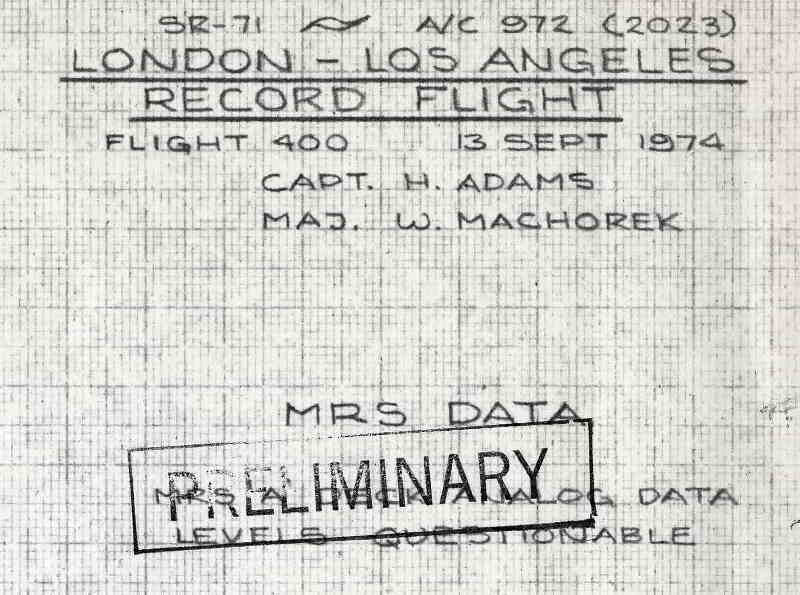 SR-71 ~ A/C 972 (2023)
LONDON - LOS ANGELES
RECORD FLIGHT
FLIGHT 400 13 SEPT 1974
CAPT. H. ADAMS
MAJ. W. MACHOREK
MRS DATA
PRELIMINARY
MRS A DECK ANALOG DATA
LEVELS QUESTIONABLE